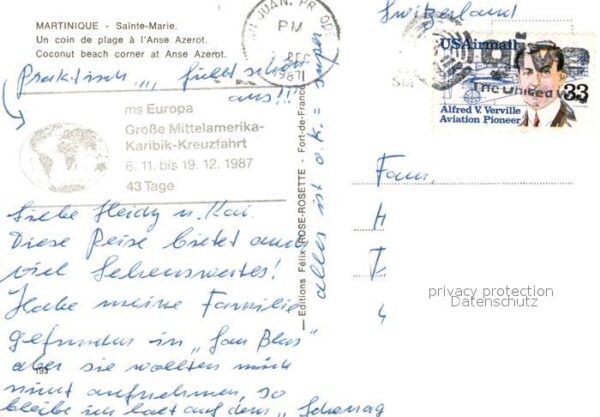 MARTINIQUE - Sainte-Marie.
Un coin de plage à l'Anse Azerot.
Coconut beach corner at Anse Azerot.
Praktisch,,, füllt schön
aus!!!
ms Europa
Große Mittelamerika-
Karibik-Kreuzfahrt
6. 11. bis 19. 12. 1987
43 Tage
Liebe Heidy u. Kai.
Diese Reise bietet auch
viel Sehenswertes!
Habe meine Familie
gefunden in „San Blas"
aber sie wollten mich
nicht aufnehmen, so
bleibe ich halt auf dem
193
Editions Félix ROSE-ROSETTE - Fort-de-France
alles ist o.k. = super
JUAN, PR
PM
DEC
1987
Switzerland
USAirmail
The United
33
Alfred V. Verville
Aviation Pioneer
Fam.
H
privacy protection
Datenschutz